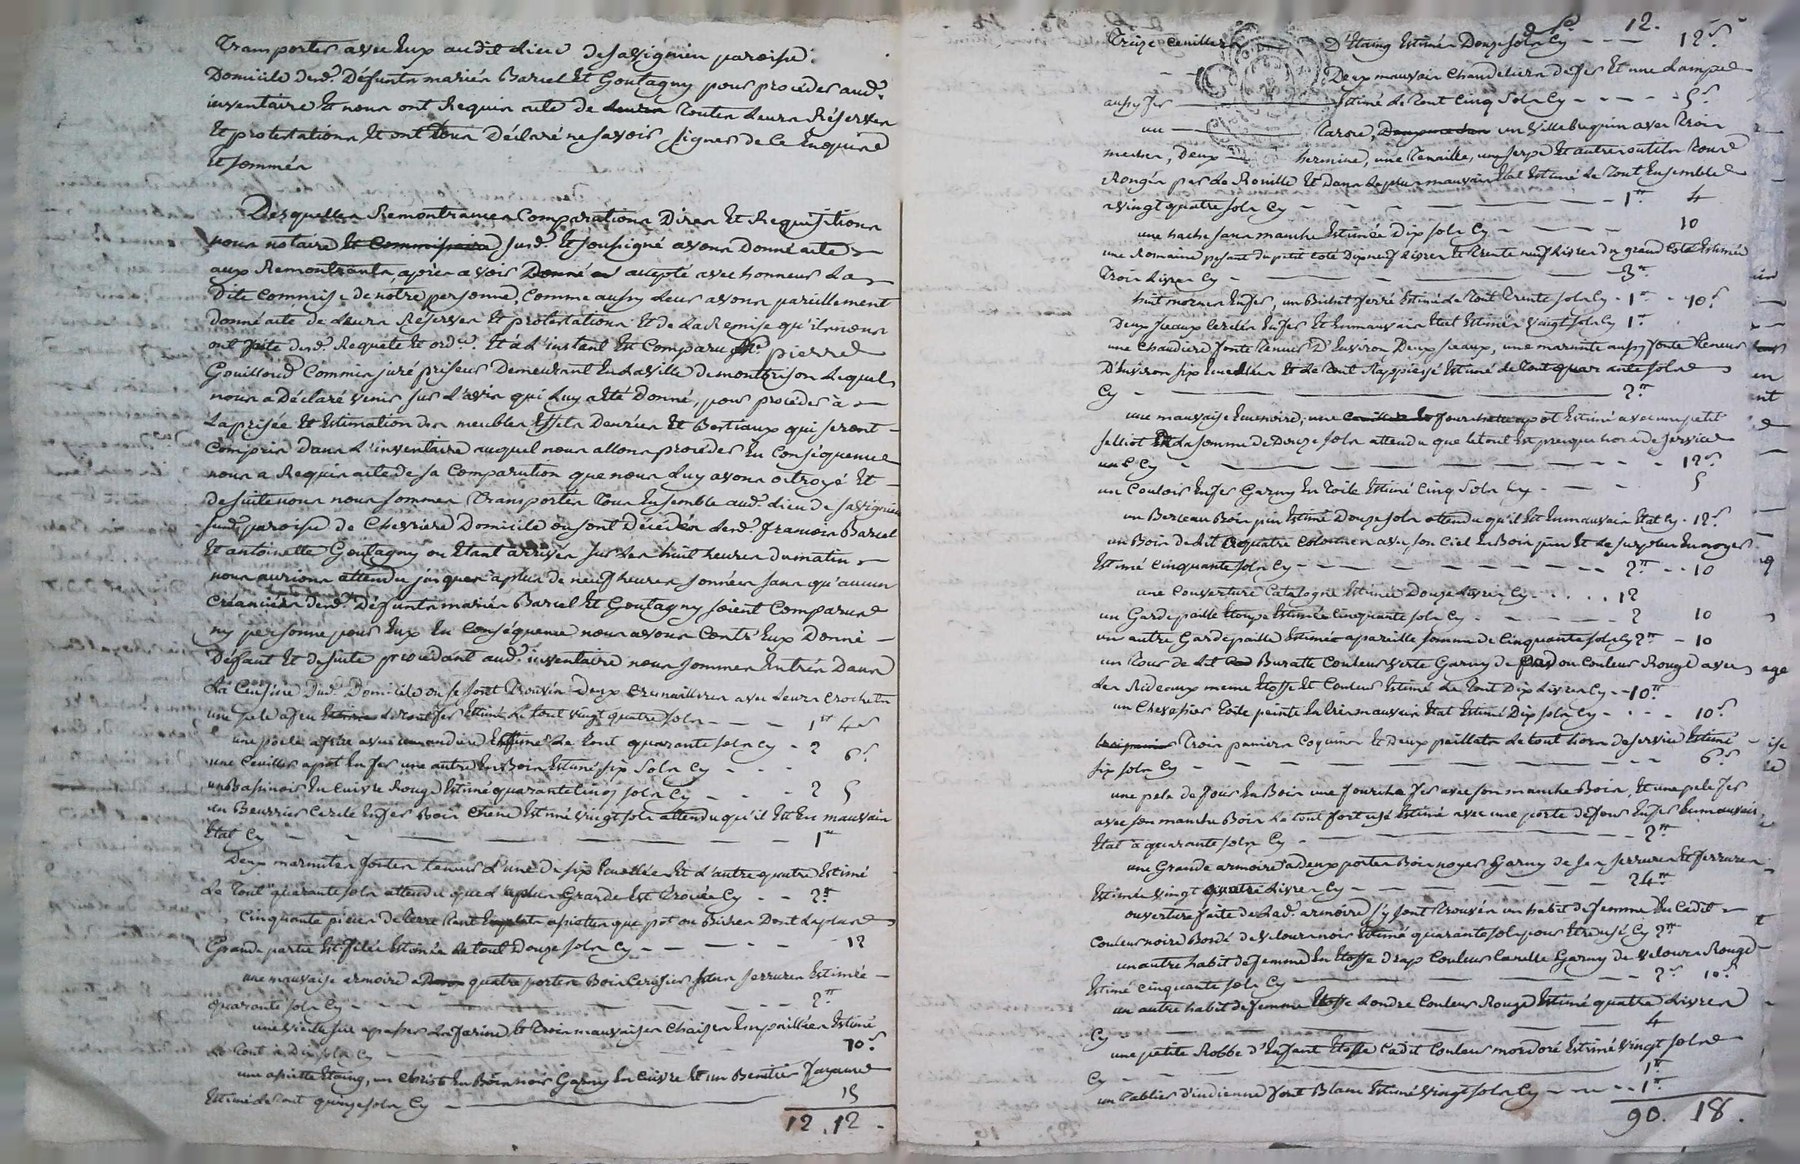 Transporter avec Eux audit Lieu de savignieu paroisse.
Domicile desd. Défunts mariés Bariel Et Goutagny pour procéder aud.
inventaire Et nous ont Requis acte de Leurs Toutes Leurs Réserves
Et protestations Et ont tous Déclaré ne savoir signer de ce Enquis
Et sommés
Desquelles Remontrances Comparutions Dires Et Requisitions
nous notaire Et Commissaire susd. Et soussigné avons Donné acte
aux Remontrants, apres avoir Donné accepté avec honneur La
Dite Commise de nôtre personne, Comme aussy Leur avons pareillement
donné acte de Leurs Réserves Et protestations Et de La Remise qu'ils nous
ont faite desd. Requete Et ord.ce Et à L'instant Est Comparu Me. pierre
Gouilloud Commis juré priseur Demeurant En La ville de montbrison Lequel
nous a Déclaré venir sur L'avis qui Luy a Eté Donné, pour procéder à
La prisée Et Estimation des meubles Effets Denrées Et Bestiaux qui seront
Compris dans L'inventaire auquel nous allons proceder En Conséquence
nous a Requis acte de sa Comparution que nous Luy avons octroyé Et
de suite nous nous sommes Transportés Tous Ensemble aud. Lieu de savignieu
susd. paroisse de Chevriere Domicile ou sont Décédés Lesd. francois Bariel
Et antoinette Goutagny ou Etant arrivés sur Les huit heures du matin
nous aurions attendu jusques a plus de neuf heures sonnées sans qu'aucun
Créanciers desd. Défunts mariés Bariel Et Goutagny soient Comparus
ny personne pour Eux En Conséquence nous avons Contr'Eux Donné
Défaut Et de suite procédant aud. inventaire nous sommes Entrés Dans
La Cuisine dud. Domicile ou se sont Trouvés Deux Cremailleres avec Leurs Crochets
une pele a feu Le tout fer Estimé Le tout vingt quatre sols - - - 1tt 4s
une poele a frire Estimé Le tout quarante sols Cy - 2
une Cuillier a pot En fer une autre En Bois Estimé six Sols Cy - - - 6s
un Bassinoir En Cuivre Rouge Estimé quarante Cinq sols Cy - - - 2 5
un Beurrier Cerclé En fer Bois Chene Estimé vingt sols attendu qu'il Est En mauvais
Etat Cy - - - 1tt
Deux marmites fontes teneur L'une de six Ecuellées Et L'autre quatre Estimé
Le Tout quarante sols attendu que La plus Grande Est Trouée Cy - - 2tt
Cinquante pieces de terre Tant En plats assiettes que pot ou Bicher Dont La plus
Grande partie Est félée Estimée Le tout Douze sols Cy - - - 12
une mauvaise armoire a quatre portes Bois Cerisier sans serrures Estimée
quarante sols Cy - - - 2tt
une vieille scie a passer La farine Et Trois mauvaises Chaises Empaillées Estimé
Le Tout a Dix sols Cy 10s
une assiette Etaing, un Christ En Bois noir Garny En Cuivre Et un Benitier fayance
Estimé Le Tout quinze sols Cy 15
12. 12.
12.
Treize Cuilliers D'Etaing Estimés Douze sols Cy - - - 12s
Deux mauvais Chandeliers de fer Et une Lampe
aussy fer Estimé Le Tout Cinq Sols Cy - - - 5s
un Tarore, un Villebrequin avec Trois
meches, Deux hermine, une Tenaille, une serpe Et autres outils Tous
Rongés par La Rouille Et Dans Le plus mauvais Etat Estimé Le Tout Ensemble
a vingt quatre sols Cy - - - 1tt 4
une hache sans manche Estimée Dix sols Cy - - - 10
une Romaine pesant du petit coté dix neuf Livres Et Trente neuf Livres du grand Coté Estimée
Trois Livres Cy - - - 3tt
huit mornes En fer, un Bichet ferré Estimé Le Tout Trente sols Cy - 1tt - 10s
Deux seaux Cerclés En fer Et En mauvais Etat Estimés vingt sols Cy 1tt
une Chaudiere fonte Teneur D'Environ Deux seaux, une marmite aussy fonte Teneur
D'Environ six Ecuellées Et Le Tout Rappiessé Estimé Le Tout quarante sols
Cy - - - 2tt
une mauvaise Ecumoire, une fourchette a pot Estimé avec un petit
falliot La somme de Douze sols attendu que Le tout Est presque hors de service
Cy - - - 12s
un Couloir En fer Garny En Toile Estimé Cinq Sols Cy - - - 5
un Berceau Bois pin Estimé Douze sols attendu qu'il Est En mauvais Etat Cy - 12s
un Bois de Lit a quatre Colonnes avec son Ciel En Bois pin Et Le surplus En noyer
Estimé Cinquante sols Cy - - - 2tt - - 10
une Couverture Catalogne Estimée Douze Livres Cy - - - 12
un Gardepaille Estimé Cinquante sols Cy - - - 2 10
un autre Gardepaille Estimé a pareille somme de Cinquante sols Cy 2tt - 10
un Tour de Lit Buratte Couleur verte Garny de Couleur Rouge avec
Les Rideaux meme Etoffe Et Couleur Estimé Le Tout Dix Livres Cy - 10tt
un Chevessier Toile peinte En Tres mauvais Etat Estimé Dix sols Cy - - - 10s
Trois paniers Coquins Et Deux paillats Le tout hors de service Estimé
six sols Cy - - - 6s
une pele de four En Bois une fourche fer avec son manche Bois, Et une pele fer
avec son manche Bois Le tout fort usé Estimé avec une porte de four En fer En mauvais
Etat a quarante sols Cy - - - 2tt
une Grande armoire a deux portes Bois noyer Garny de ses serrures Et ferrures
Estimée vingt quatre Livres Cy - - - 24tt
ouverture faite de Lad. armoire s'y sont Trouvés un habit de femme En Cadit
Couleur noire Bordé de velours noir Estimé quarante sols pour Etre usé Cy 2tt
un autre habit de femme En Etoffe drap Couleur Canelle Garny de velours Rouge
Estimé Cinquante sols Cy - - - 2tt 10s
un autre habit de femme Etoffe Londre Couleur Rouge Estimé quatre Livres
Cy - - - 4
une petite Robbe d'Enfant Etoffe Cadit Couleur mordoré Estimé vingt sols
Cy - - - 1tt
un Tablier d'indienne fond Blanc Estimé vingt sols Cy - - - 1tt
90. 18.